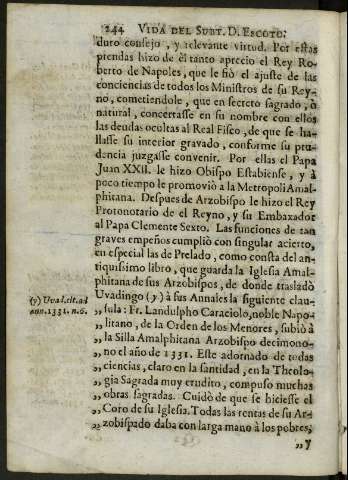 244 VIDA DEL SUBT. D. ESCOTO.
duro consejo, y relevante virtud. Por estas
prendas hizo de èl tanto aprecio el Rey Ro-
berto de Napoles, que le fiò el ajuste de las
conciencias de todos los Ministros de su Rey-
no, cometiendole, que en secreto sagrado, ò
natural, concertasse en su nombre con ellos
las deudas ocultas al Real Fisco, de que se ha-
llasse su interior gravado, conforme su pru-
dencia juzgasse convenir. Por ellas el Papa
Juan XXII. le hizo Obispo Estabiense, y à
poco tiempo le promoviò a la Metropoli Amal-
phitana. Despues de Arzobispo le hizo el Rey
Protonotario de el Reyno, y su Embaxador
al Papa Clemente Sexto. Las funciones de tan
graves empeños cumpliò con singular acierto,
en especial las de Prelado, como consta del an-
tiquissimo libro, que guarda la Iglesia Amal-
phitana de sus Arzobispos, de donde trasladò
Uvadingo (y) à sus Annales la siguiente clau-
(y) Uvad. cit. ad
ann. 1331. n. 6.
„ sula: Fr. Landulpho Caraciolo, noble Napo-
„ litano, de la Orden de los Menores, subiò à
„ la Silla Amalphitana Arzobispo decimono-
„ no el año de 1331. Este adornado de todas
„ ciencias, claro en la santidad, en la Theolo-
„ gia Sagrada muy erudito, compuso muchas
„ obras sagradas. Cuidò de que se hiciesse el
„ Coro de su Iglesia. Todas las rentas de su Ar-
„ zobispado daba con larga mano à los pobres,
„ y